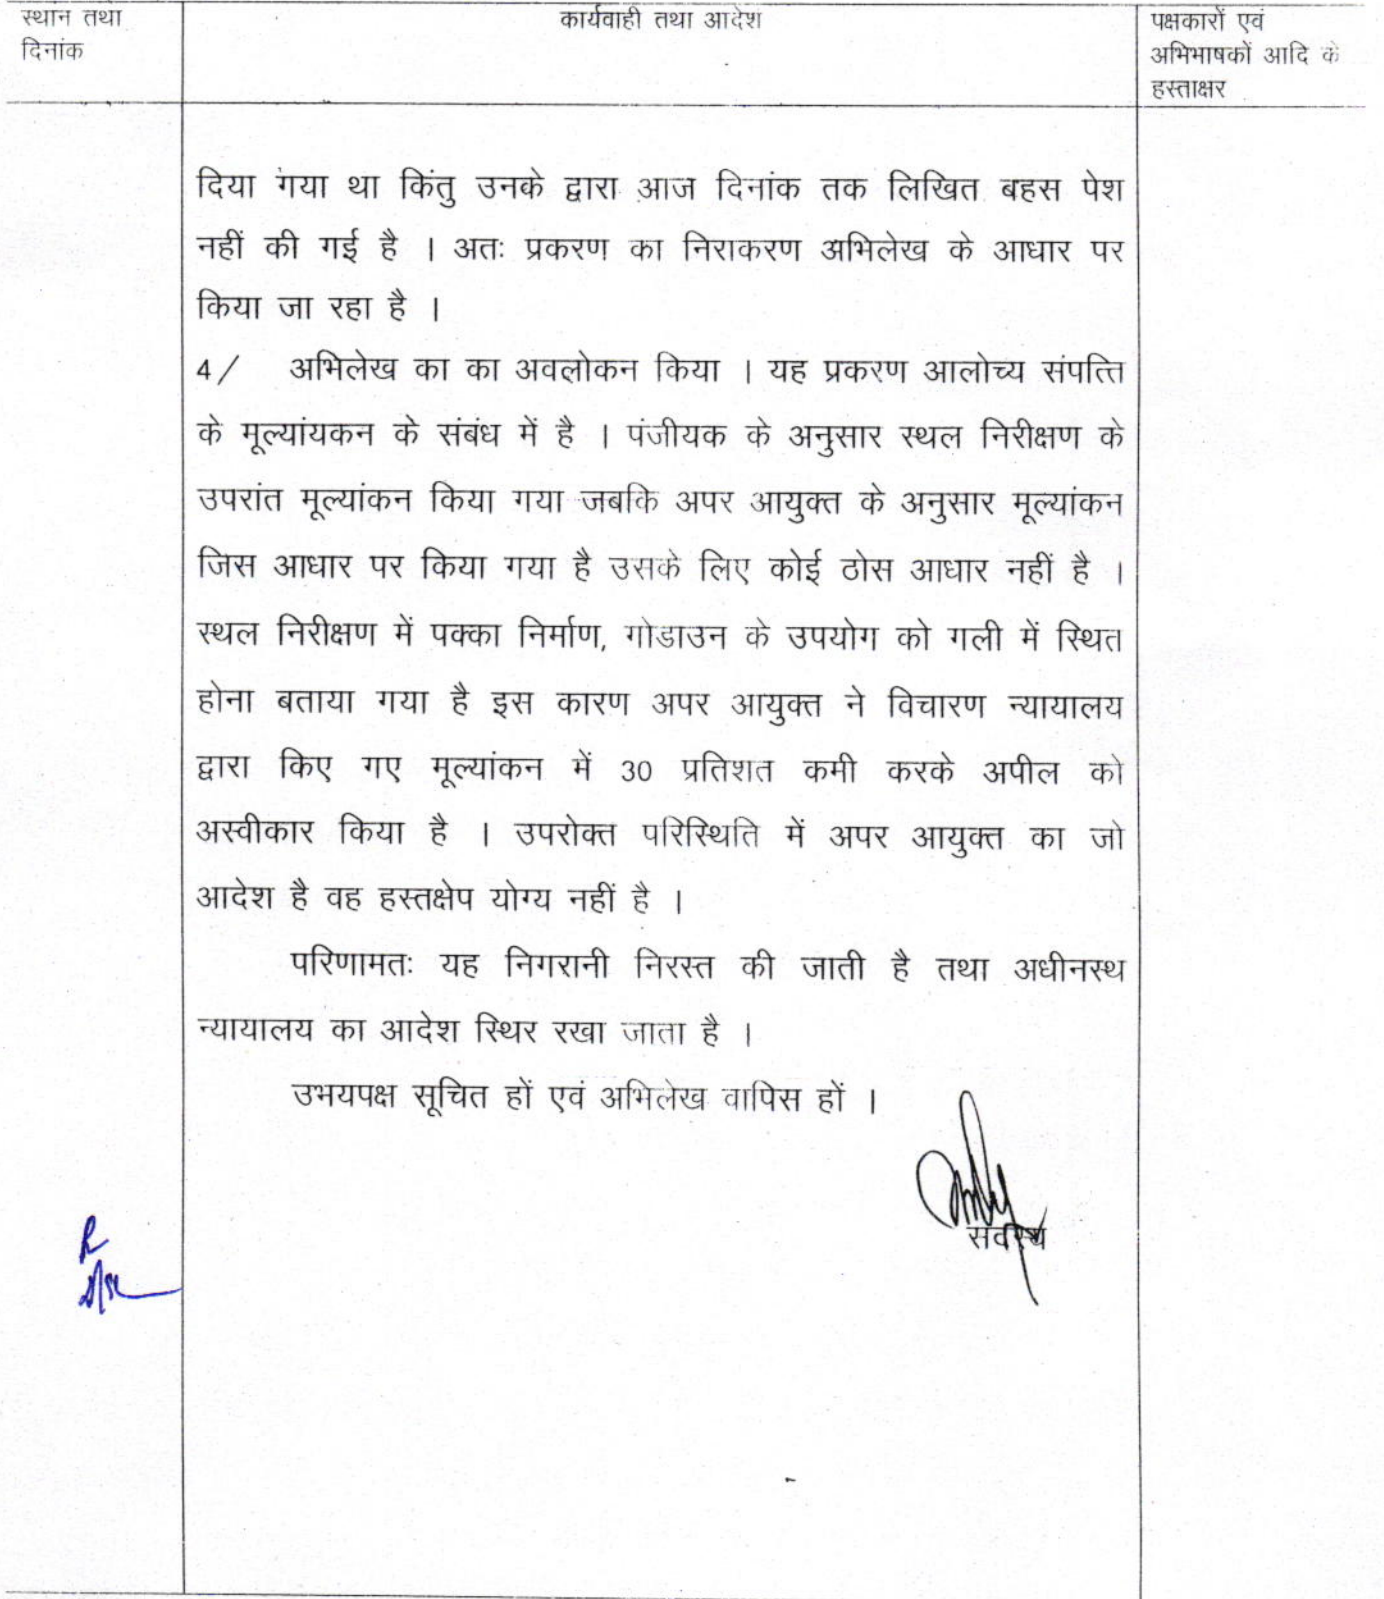 स्थान तथा
दिनांक
कार्यवाही तथा आदेश
पक्षकारों एवं
अभिभाषकों आदि के
हस्ताक्षर
दिया गया था किंतु उनके द्वारा आज दिनांक तक लिखित बहस पेश
नहीं की गई है । अतः प्रकरण का निराकरण अभिलेख के आधार पर
किया जा रहा है ।
4/ अभिलेख का का अवलोकन किया । यह प्रकरण आलोच्य संपत्ति
के मूल्यांयकन के संबंध में है । पंजीयक के अनुसार स्थल निरीक्षण के
उपरांत मूल्यांकन किया गया जबकि अपर आयुक्त के अनुसार मूल्यांकन
जिस आधार पर किया गया है उसके लिए कोई ठोस आधार नहीं है ।
स्थल निरीक्षण में पक्का निर्माण, गोडाउन के उपयोग को गली में स्थित
होना बताया गया है इस कारण अपर आयुक्त ने विचारण न्यायालय
द्वारा किए गए मूल्यांकन में 30 प्रतिशत कमी करके अपील को
अस्वीकार किया है । उपरोक्त परिस्थिति में अपर आयुक्त का जो
आदेश है वह हस्तक्षेप योग्य नहीं है ।
परिणामतः यह निगरानी निरस्त की जाती है तथा अधीनस्थ
न्यायालय का आदेश स्थिर रखा जाता है ।
उभयपक्ष सूचित हों एवं अभिलेख वापिस हों ।